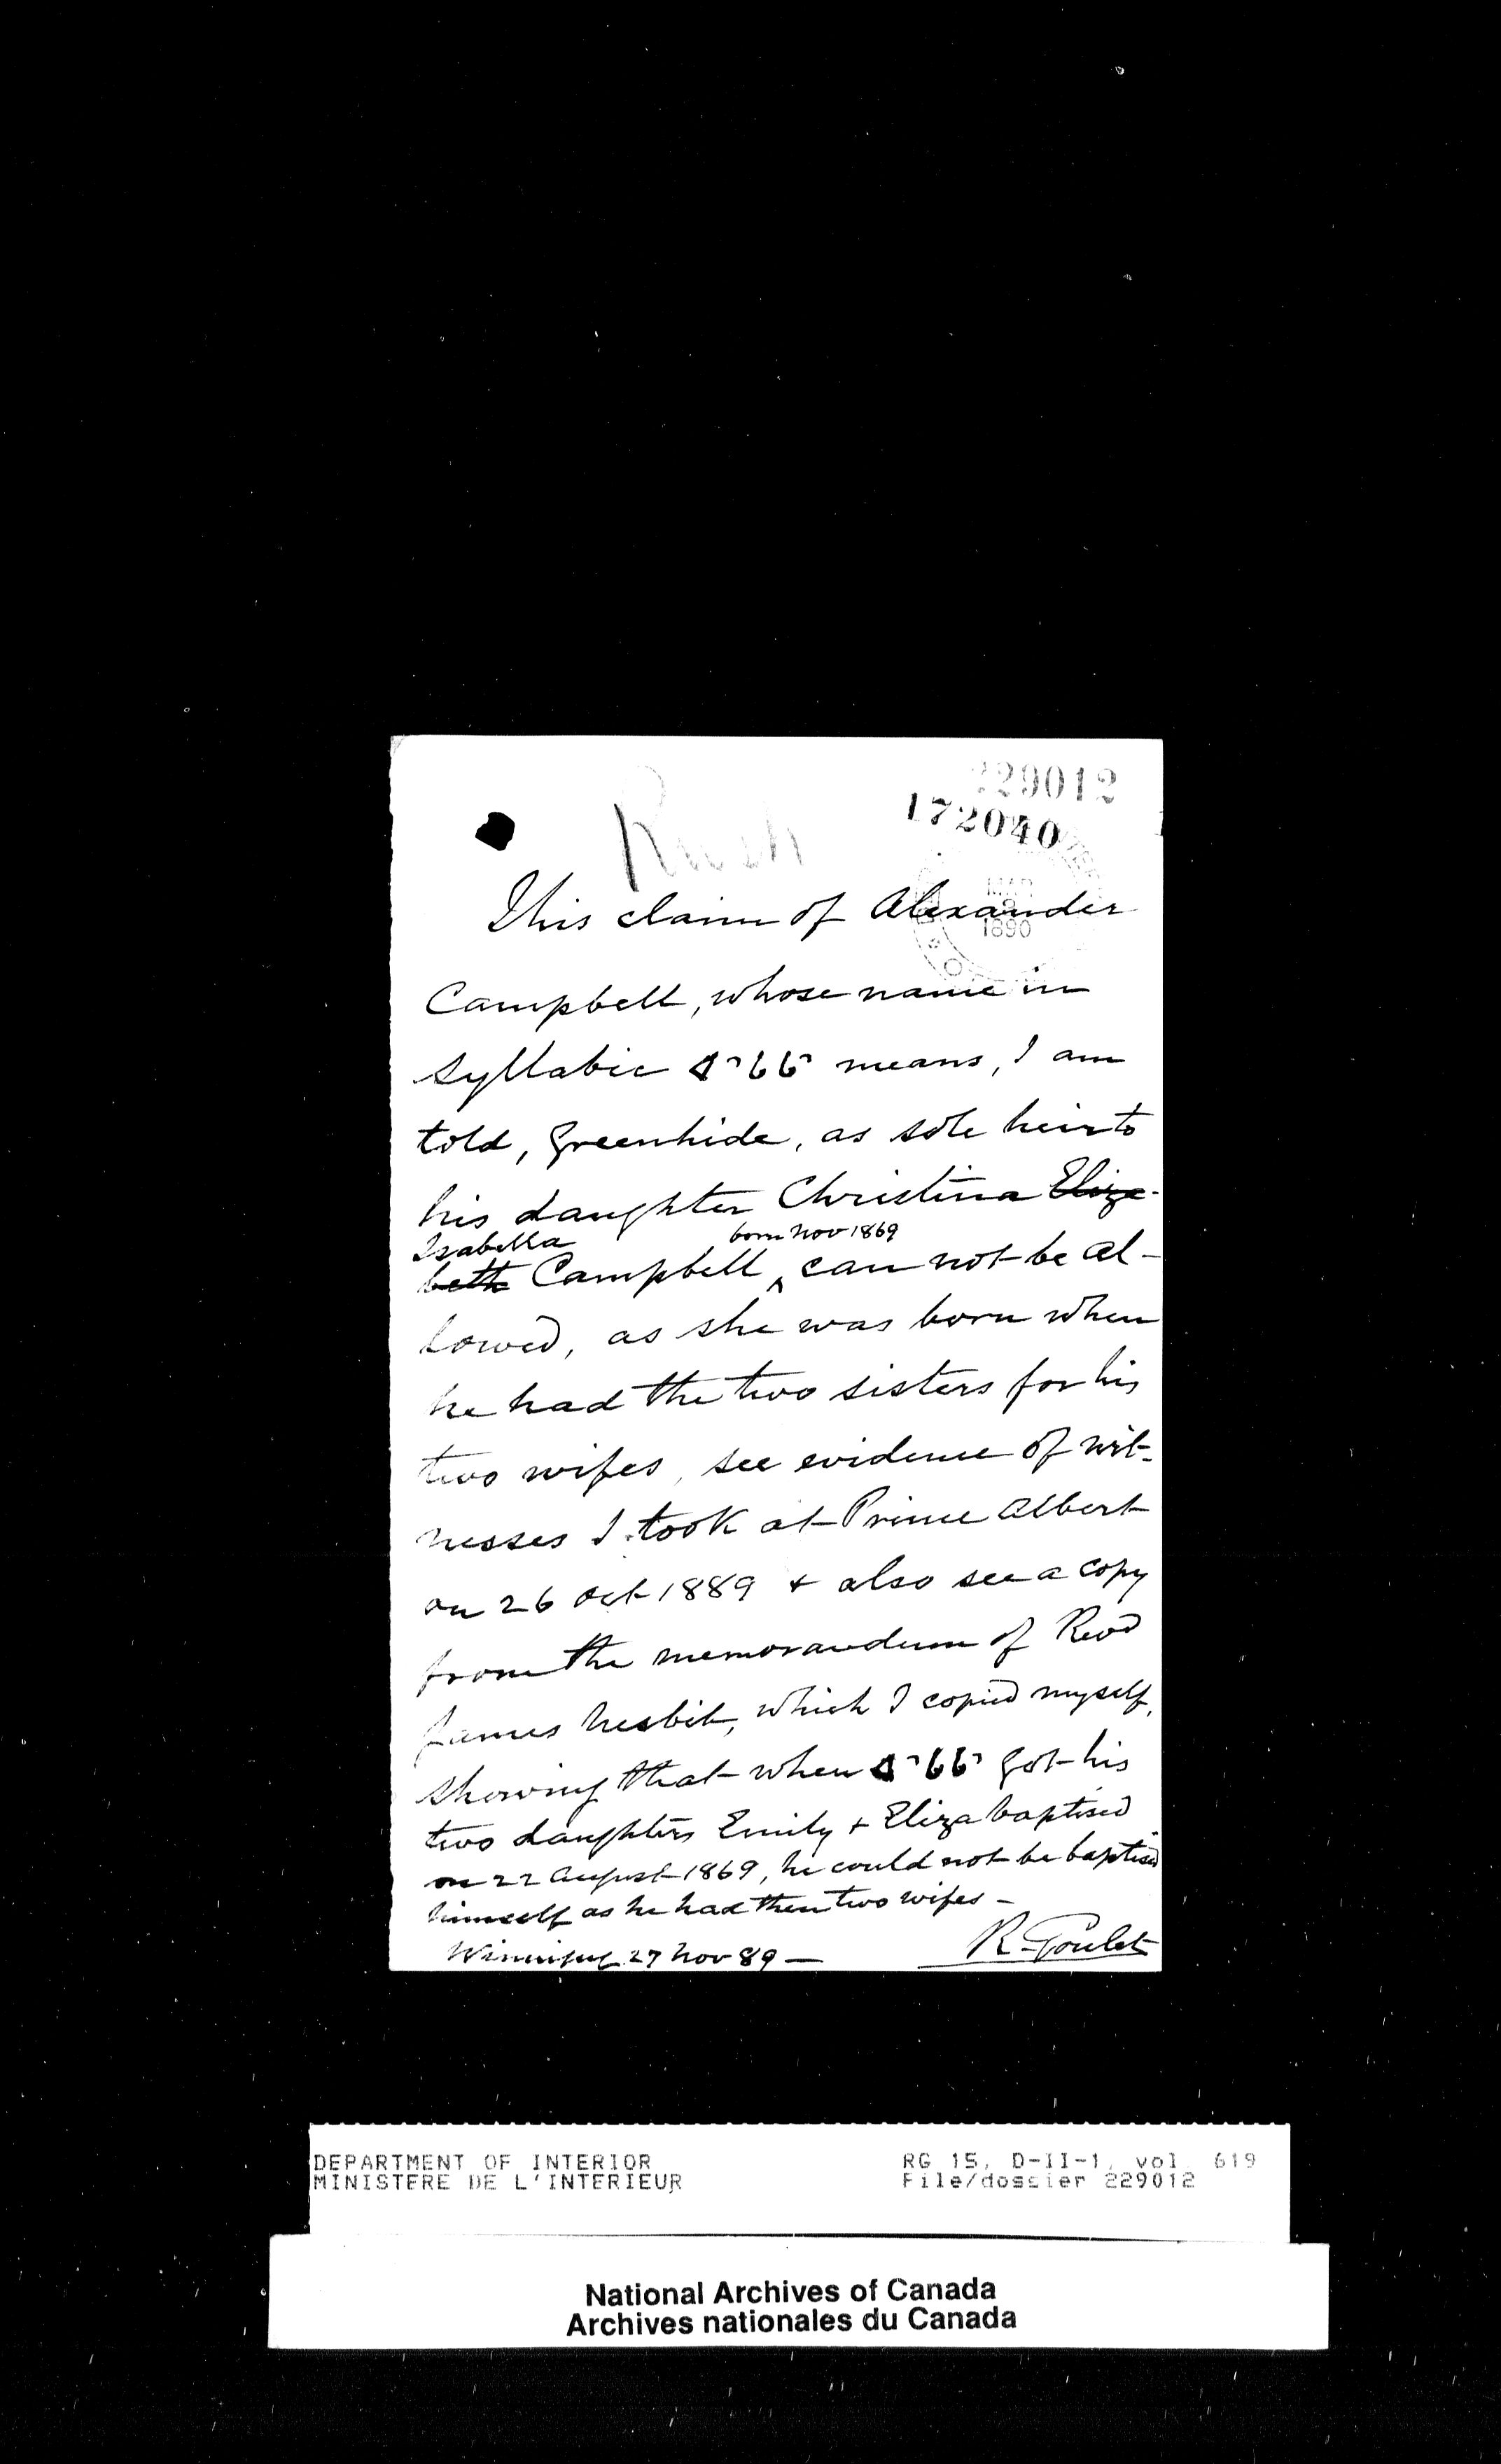 229012
172040
MAR
1890
This claim of Alexander
Campbell, whose name in
syllabic ᐊᐣᑲᑲᐣ means, I am
told, Greenhide, as sole heir to
his daughter Christina Eliza-
Isabella born Nov 1869
beth Campbell ^ can not be al-
lowed, as she was born when
he had the two sisters for his
two wifes, see evidence of wit-
nesses I took at Prince Albert
on 26 Oct 1889 & also see a copy
from the memorandum of Revd
James Nesbit, which I copied myself,
showing that when ᐊᐣᑲᑲᐣ got his
two daughters Emily & Eliza baptised
on 22 August 1869, he could not be baptised
himself as he had then two wifes -
Winnipeg 27 Nov 89 — R. Goulet
DEPARTMENT OF INTERIOR RG 15, D-II-1, vol. 619
MINISTERE DE L'INTERIEUR File/dossier 229012
National Archives of Canada
Archives nationales du Canada